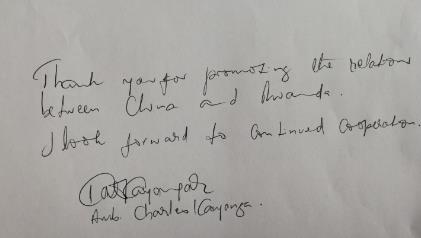 Thank you for promoting the relations
between China and Rwanda.
I look forward to continued cooperation.
Amb. Charles Kayonga.